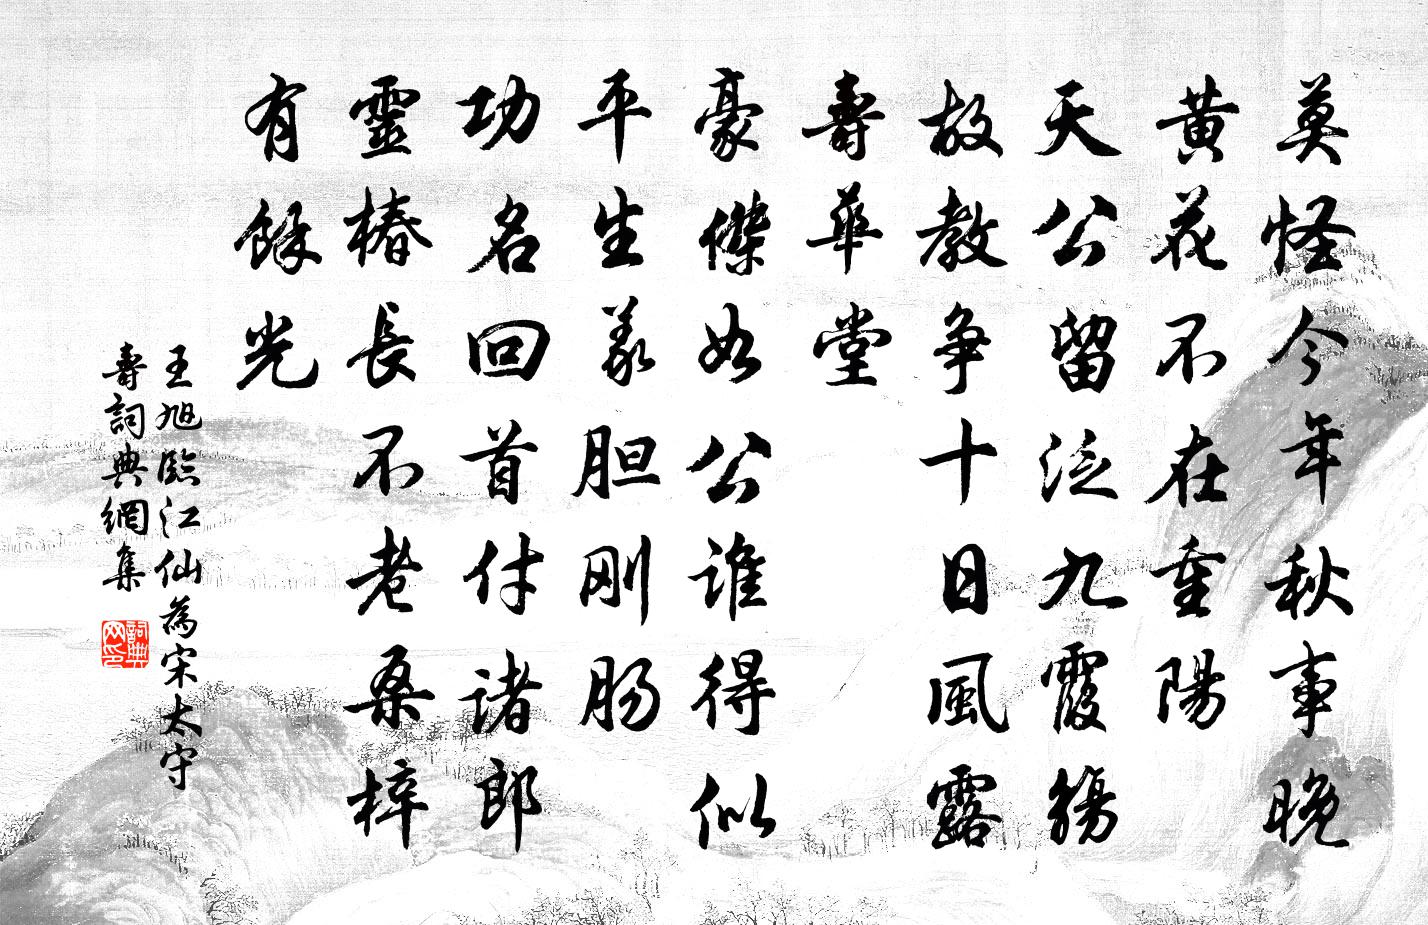 莫怪今年秋事晚
黄花不在重陽
天公留泛九霞觴
故教争十日風露
壽華堂
豪傑如公誰得似
平生義胆刚肠
功名回首付诸郎
靈椿長不老桑梓
有餘光
王旭臨江仙為宋太守
壽詞典網集
詞典网印